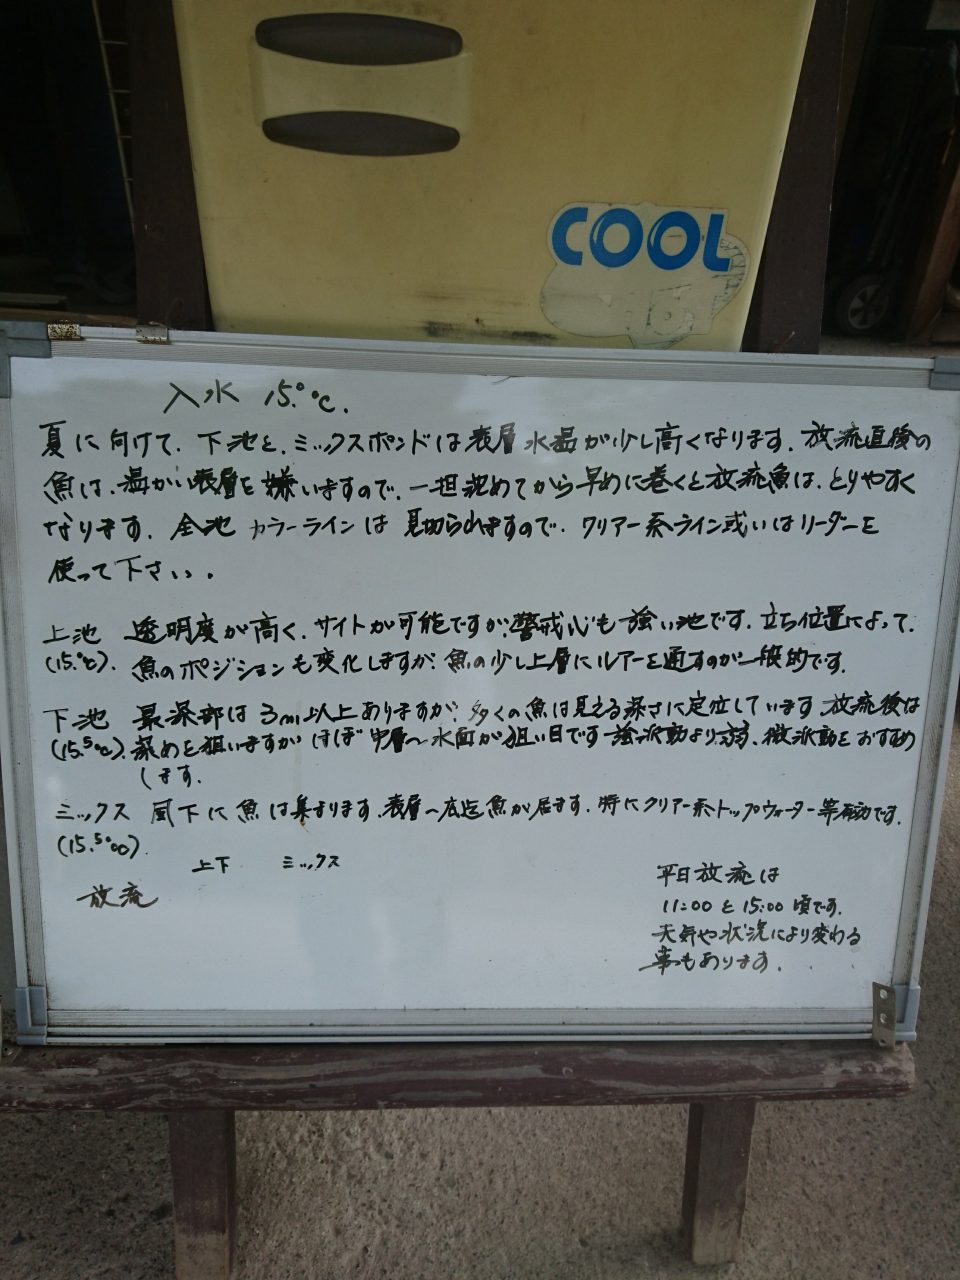 COOL
入水 15.°℃.
夏に向けて、下池と、ミックスポンドは表層水温が少し高くなります。放流直後の
魚は、温かい表層を嫌いますので、一担沈めてから早めに巻くと放流魚は、とりやすく
なります。全池 カラーラインは見切られますので、クリアー系ライン或いはリーダーを
使って下さい。
上池 透明度が高く、サイトが可能ですが、警戒心も強い池です。立ち位置によって、
(15.℃). 魚のポジションも変化しますが、魚の少し上層にルアーを通すのが一般的です。
下池 最深部は3m以上ありますが、多くの魚は見える深さに定位しています 放流後は
(15.5℃). 深めを狙いますが ほぼ中層〜水面が狙い目です 強波動より弱、微波動をおすすめ
します。
ミックス 風下に魚は集まります。表層〜底迄魚が居ます。特にクリアー系トップウォーター等有効です。
(15.5℃).
上下 ミックス
放流
平日放流は
11:00と15:00頃です。
天気や状況により変わる
事もあります。